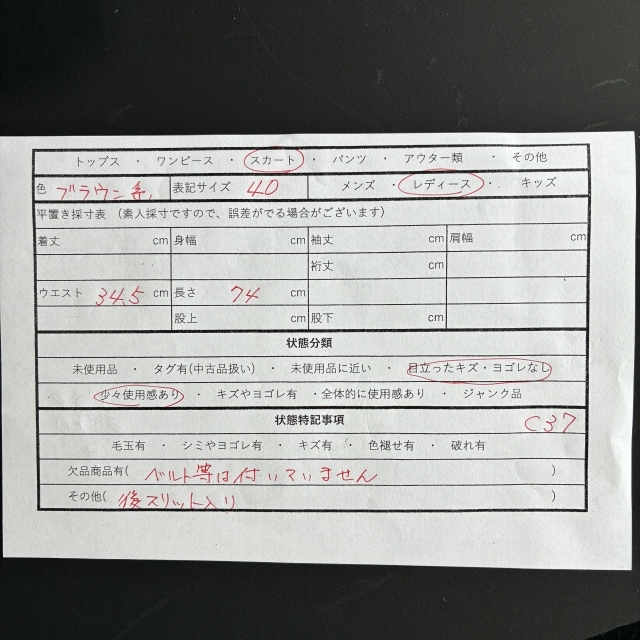 トップス ・ ワンピース ・ スカート ・ パンツ ・ アウター類 ・ その他
色 ブラウン系 表記サイズ 40 メンズ ・ レディース ・ キッズ
平置き採寸表 (素人採寸ですので、誤差がでる場合がございます)
着丈 cm 身幅 cm 袖丈 cm 肩幅 cm
裄丈 cm
ウエスト 34.5 cm 長さ 74 cm
股上 cm 股下 cm
状態分類
未使用品 ・ タグ有(中古品扱い) ・ 未使用品に近い ・ 目立ったキズ・ヨゴレなし
少々使用感あり ・ キズやヨゴレ有 ・全体的に使用感あり ・ ジャンク品
状態特記事項 C37
毛玉有 ・ シミやヨゴレ有 ・ キズ有 ・ 色褪せ有 ・ 破れ有
欠品商品有( ベルト等は付いていません )
その他( 後スリット入り )